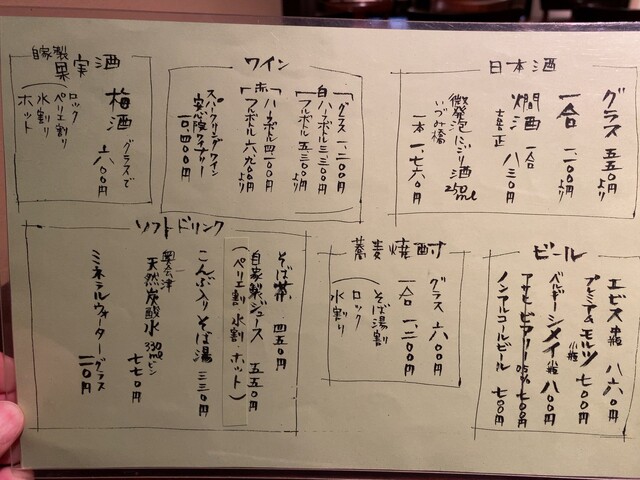 日本酒
グラス 五五〇円より
一合 一、一〇〇円より
燗酒 一合 八三〇円
喜正
微発泡にごり酒 250ml
いづみ橋
一本 一、七六〇円
ワイン
グラス 一、一〇〇円
白 ハーフボトル 三、三〇〇円
フルボトル 五、三〇〇円より
赤 ハーフボトル 四、一〇〇円
フルボトル 六、九〇〇円より
スパークリングワイン
安心院ワイナリー
一〇、四〇〇円
自家製
果実酒
梅酒 グラスで 六〇〇円
ロック
ペリエ割り
水割り
ホット
ビール
エビス 中瓶 八六〇円
プレミアムモルツ 小瓶 七〇〇円
ベルギー シメイ 小瓶 八〇〇円
アサヒビアリー 0.5% 七〇〇円
ノンアルコールビール 七〇〇円
蕎麦焼酎
グラス 六〇〇円
一合 一、二〇〇円
そば湯割
ロック
水割り
ソフトドリンク
そば茶 四五〇円
自家製ジュース 五五〇円
(ペリエ割 水割 ホット)
こんぶ入りそば湯 三三〇円
奥会津
天然炭酸水 330mlビン
七七〇円
ミネラルウォーター グラス
二〇円